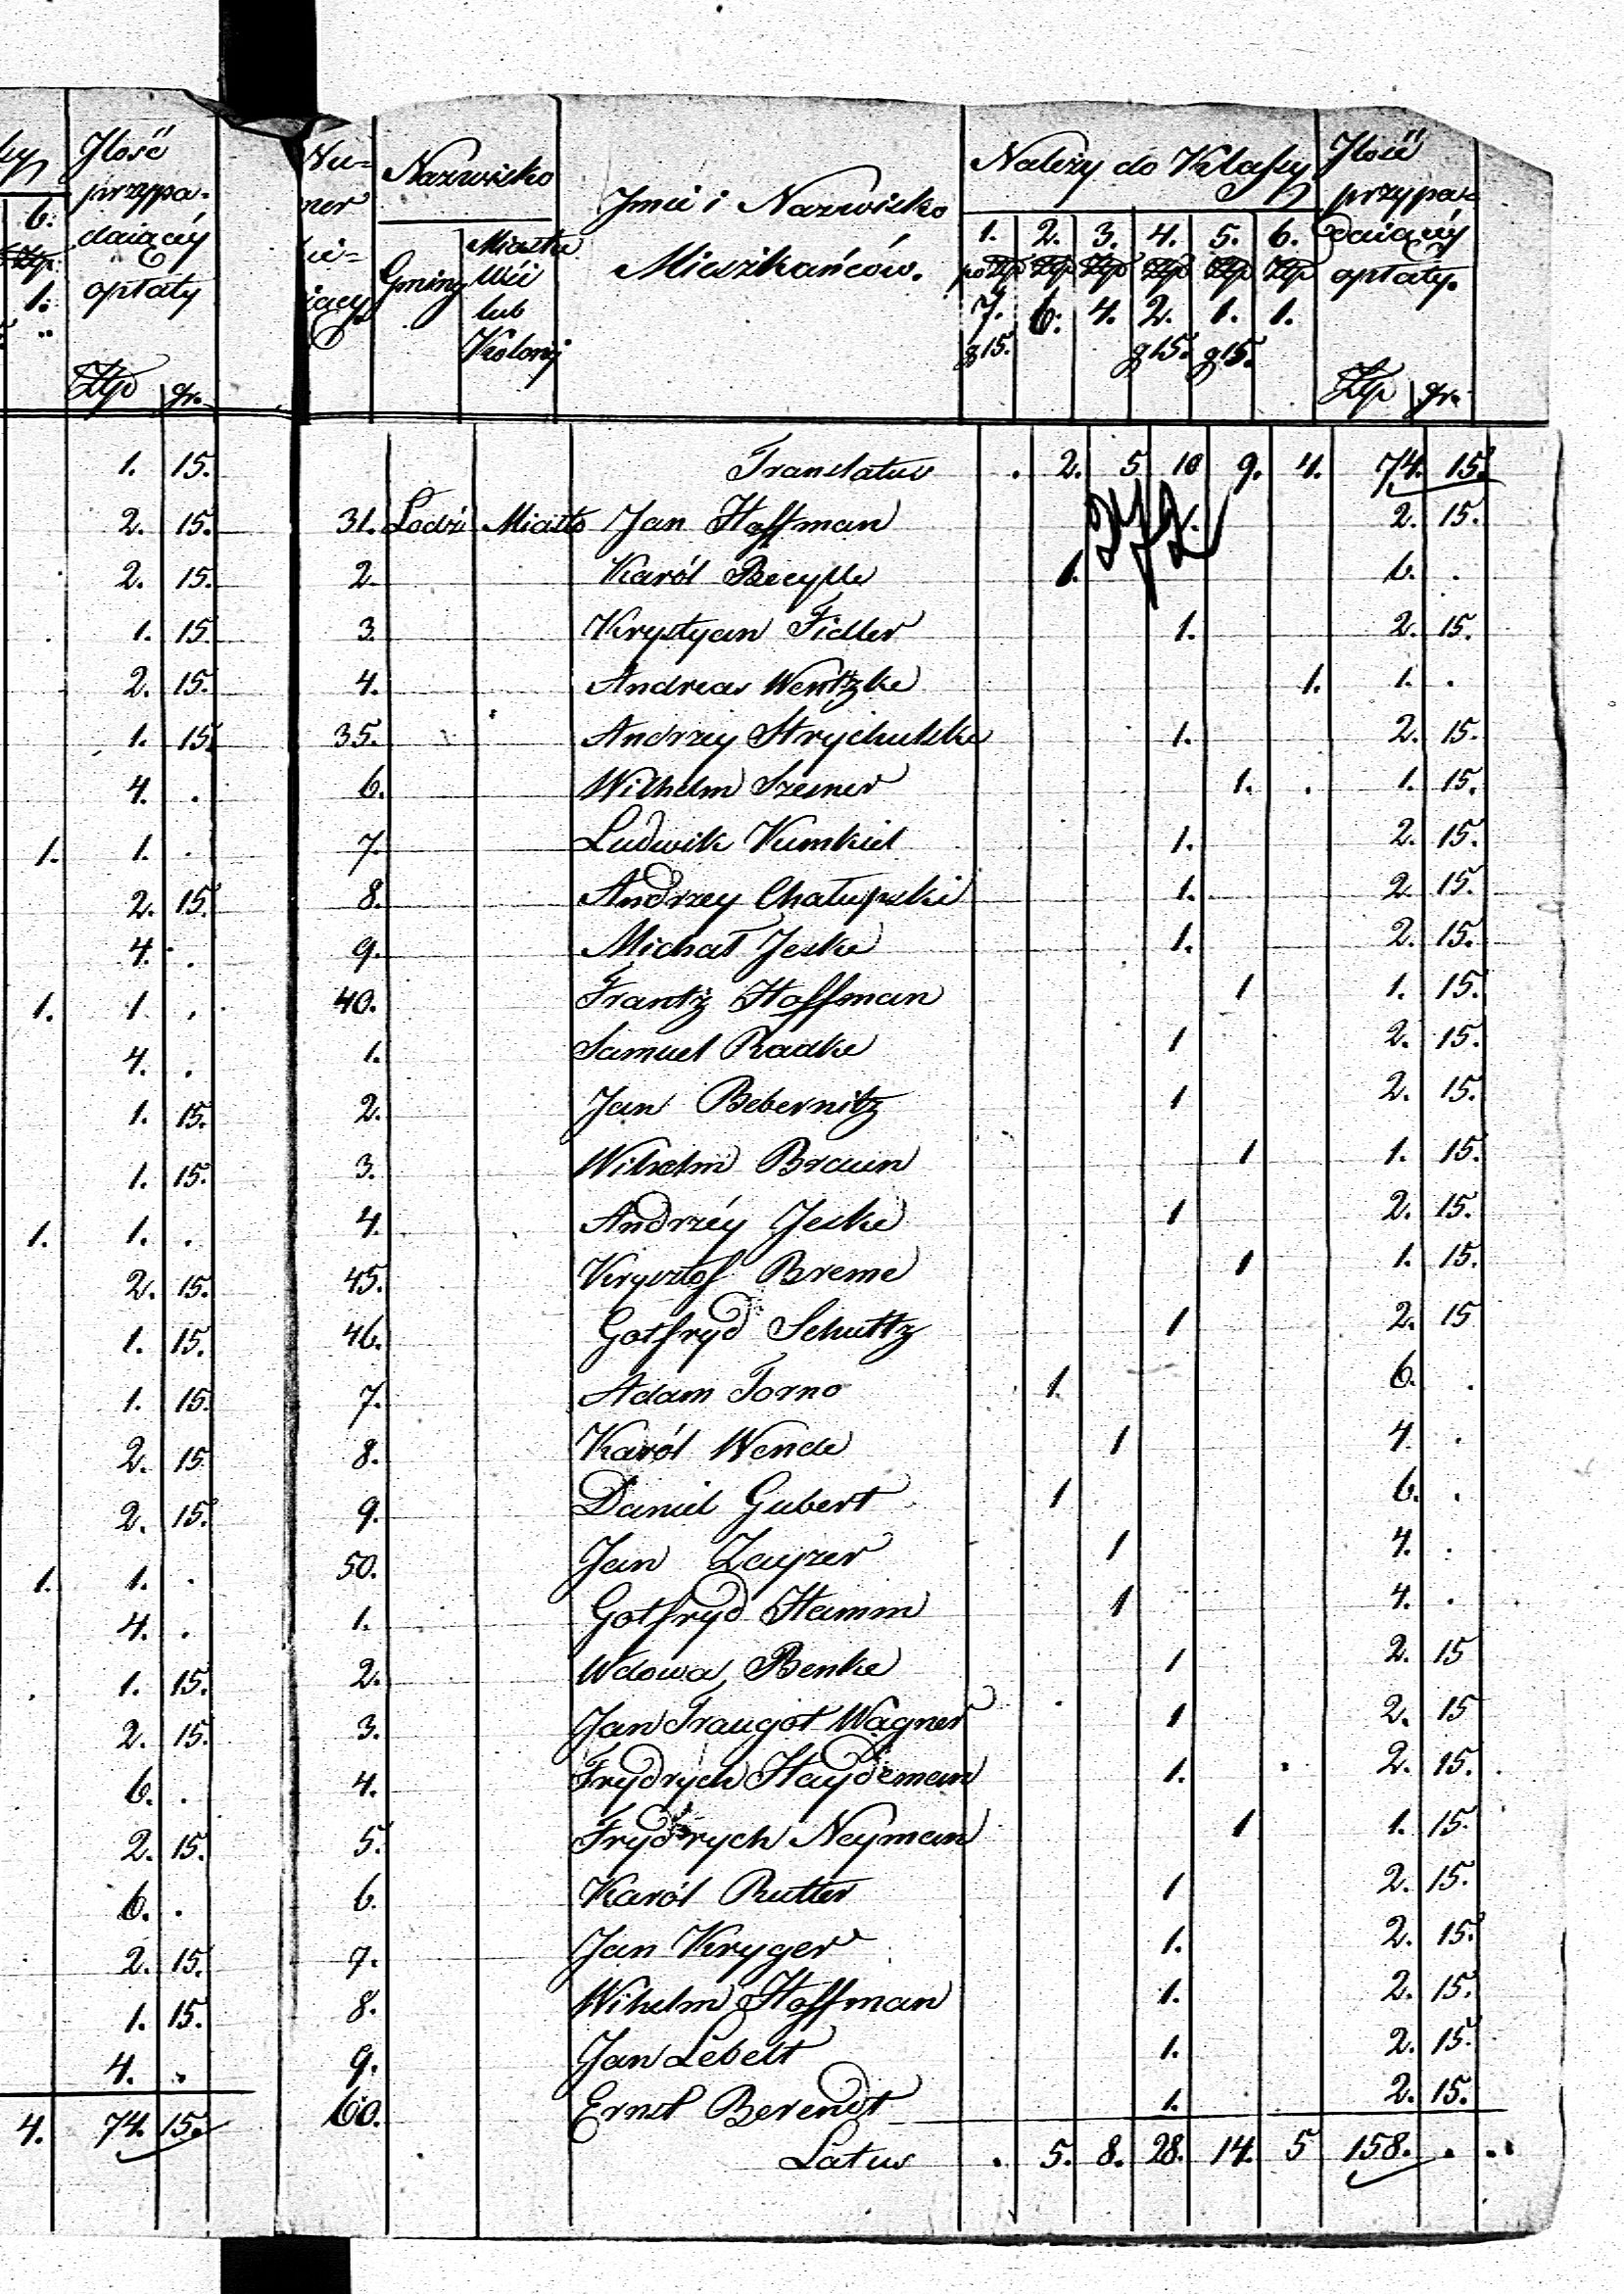 ky
Ilość
przypa-
daiącéy
opłaty
6.
Złp.
1.
Złp gr.
1. 15.
2. 15.
2. 15.
1. 15.
2. 15.
1. 15.
4. .
1. 1. .
2. 15.
4. .
1. 1. .
4. .
1. 15.
1. 15.
1. 1. .
2. 15.
1. 15.
1. 15.
2. 15.
2. 15.
1. 1. .
4. .
1. 15.
2. 15.
6. .
2. 15.
6. .
2. 15.
1. 15.
4. .
4. 74. 15.
Nu-
mer
Nazwisko
Gminy
Miasta
Wsi
lub
Kolonij
Jmie i Nazwisko
Mieszkańców.
Należy do Klassy
1. 2. 3. 4. 5. 6.
po Złp Złp Złp Złp Złp Złp
7. 6. 4. 2. 1. 1.
g 15. g 15. g 15.
Ilość
przypa-
daiącéy
opłaty.
Złp gr.
Translatus . 2. 5 10 9. 4. 74. 15.
31. Lodzi Miasto Jan Hoffman 1. 2. 15.
2 Karól 1. 6. .
3. Krystyan Fidler 1. 2. 15.
4. Andreas Wentzke 1. 1. .
35. Andrzey 1. 2. 15.
6. Wilhelm 1. . 1. 15.
7. Ludwik Kumkiel 1. 2. 15.
8. Andrzey Chałupski 1. 2. 15.
9. Michał Jeske 1. 2. 15.
40. Frantz Hoffman 1 1. 15.
1. Samuel Radke 1 2. 15.
2. Jan Bebernitz 1 2. 15.
3. Wilhelm Braun 1 1. 15.
4. Andrzéy Jeske 1 2. 15.
45. Krysztof Breme 1 1. 15.
46. Gotfryd Schultz 1 2. 15
7. Adam Torno 1. 6. .
8. Karól Wende 1 4. .
9. Daniel Gubert 1 6. .
50. Jan Zayzer 1 4. .
1. Gotfryd Hamm 1 4. .
2. Wdowa Benke 1 2. 15
3. Jan Traugot Wagner 1 2. 15
4. Frydrych Haydeman 1. 2. 15.
5. Frydrych Neyman 1 1. 15.
6. Karól Rutter 1 2. 15.
7. Jan Kryger 1. 2. 15.
8. Wihelm Hoffman 1. 2. 15.
9. Jan Lebelt 1. 2. 15.
60. Ernst Berendt 1. 2. 15.
Latus . 5. 8. 28. 14. 5 158. .